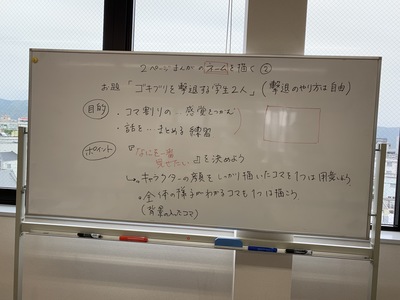 2ページまんがのネームを描く②
お題「ゴキブリを撃退する学生2人」(撃退のやり方は自由)
目的
・コマ割りの…感覚をつかむ
・話を…まとめる練習
ポイント
『なにを一番見せたい』を決めよう
↳キャラクターの顔をしっかり描いたコマを1つは用意しよう
全体の様子がわかるコマを1つは描こう
(背景の入ったコマ)